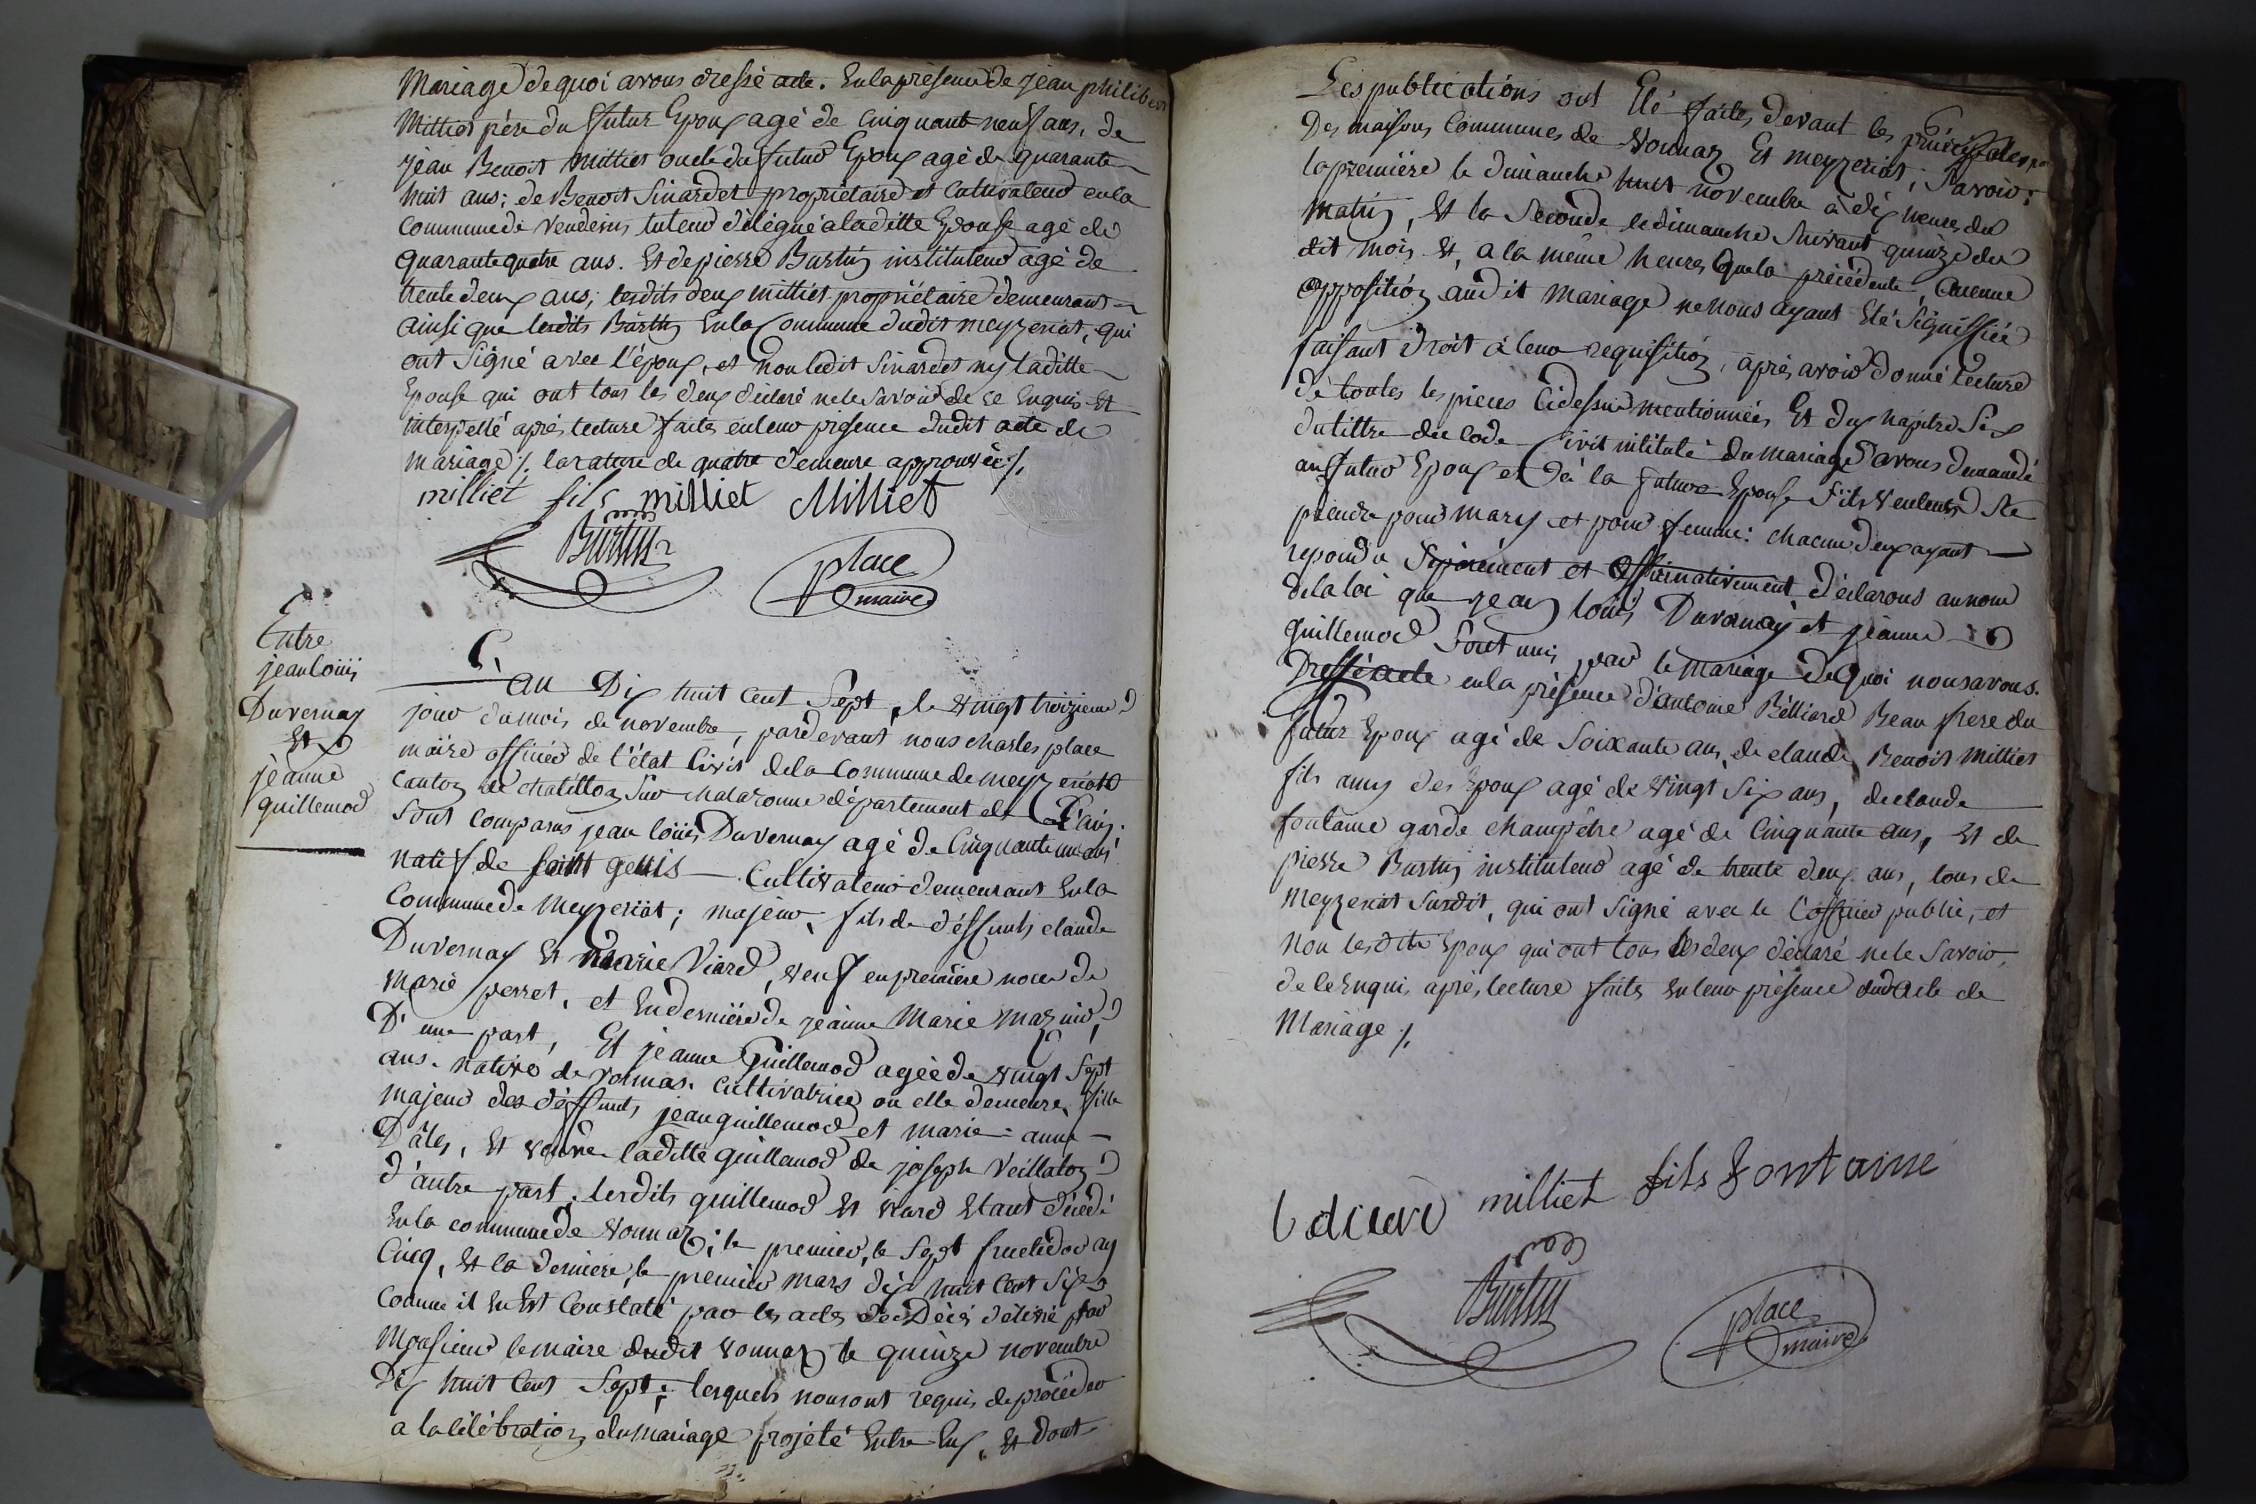 Mariage de quoi avons dressé acte. En la présence de jean philibert
Milliet père du futur Epoux agé de cinquante neuf ans, de
jean Benoit Milliet oncle du futur Epoux agé de quarante
huit ans; de Benoit Sinardet propriétaire et Cultivateur en la
commune de Vendeins tuteur délégué a laditte Epouse agé de
quarante quatre ans. Et de pierre Burtin instituteur agé de
trente deux ans; lesdits deux Milliet propriétaire demeurant
ainsi que ledit Burtin En la Commune dudit meyzeriat, qui
ont Signé avec l'époux, et non ledit Sinardet ny laditte
Epouse qui ont tous les deux déclaré ne le Savoir de ce Enquis Et
interpellé après lecture faite en leur présence dudit acte de
mariage ./. la rature de quatre demeure approuvée ./.
milliet fils milliet Milliet
Burtin
place
maire
Entre
jean loüis
Duvernay
Et
jeanne
guillemod
L'an Dix huit cent Sept, le vingt troizieme
jour du mois de novembre, pardevant nous charles place
maire officier de l'état Civil de la Commune de meyzeriat
canton de chatillon Sur chalaronne département de L'ain.
Sont comparus jean loüis Duvernay agé de Cinquante un ans
natif de saint genis Cultivateur demeurant En la
Commune de Meyzeriat; majeur, fils de déffunts claude
Duvernay Et Marie Viard, veuf en première noce de
Marie perret, et En dernière de jeanne Marie Mazuir,
D'une part, Et jeanne Guillemod agée de vingt Sept
ans. native de vonnas. Cultivatrice ou elle demeure, fille
majeur des déffunts jean guillemod et marie-anne
Dâles, Et veuve laditte guillemod de joseph Veillaton
d'autre part. lesdits guillemod Et viard Etant décédé
En la commune de vonnaz; le premier, le Sept fructidor an
Cinq, Et la dernière, le premier mars dix huit Cent Six
Comme il En Est Constaté par les actes de Décés délivré par
Monsieur le maire dudit vonnaz le quinze novembre
Dix huit Cent Sept; lesquels nous ont requis de procéder
a la célébration du mariage projété Entre Eux, Et dont
Les publications ont Eté faites devant les principales portes
Des maisons Communes de vonnaz Et meyzeriat; Savoir:
la première le dimanche huit novembre à dix heures du
matin, Et la Seconde le dimanche Suivant quinze du
dit mois Et, a la même heure que la précédente, aucune
opposition audit mariage ne nous ayant Eté Signiffiée
faisant droit à leur requisition, après avoir donné lecture
de toutes les pieces Cidessus mentionnées Et du chapitre Six
du tittre du Code Civil intitulé du mariage avons demandé
au futur Epoux et à la future Epouse S'ils veulent Se
prendre pour mary et pour femme: chacun d'eux ayant
repondu Séparément et affirmativement déclarons au nom
de la loi que jean loüis Duvernay et jeanne
guillemod Sont unis par le mariage de Quoi nous avons
Dressé acte en la présence d'antoine Bélliard Beau frere du
futur Epoux agé de Soixante ans, de claude Benoit Milliet
fils amy des Epoux agé de vingt Six ans, de claude
fontaine garde champêtre agé de Cinquante ans, Et de
pierre Burtin instituteur agé de trente deux ans, tous de
Meyzeriat Susdit, qui ont Signé avec le L'officier public, et
Non lesdits Epoux qui ont tous les deux déclaré ne le Savoir,
de ce Enquis, après lecture faite En leur présence dudit acte de
Mariage ./.
milliet fils fontaine
Burtin
place
maire